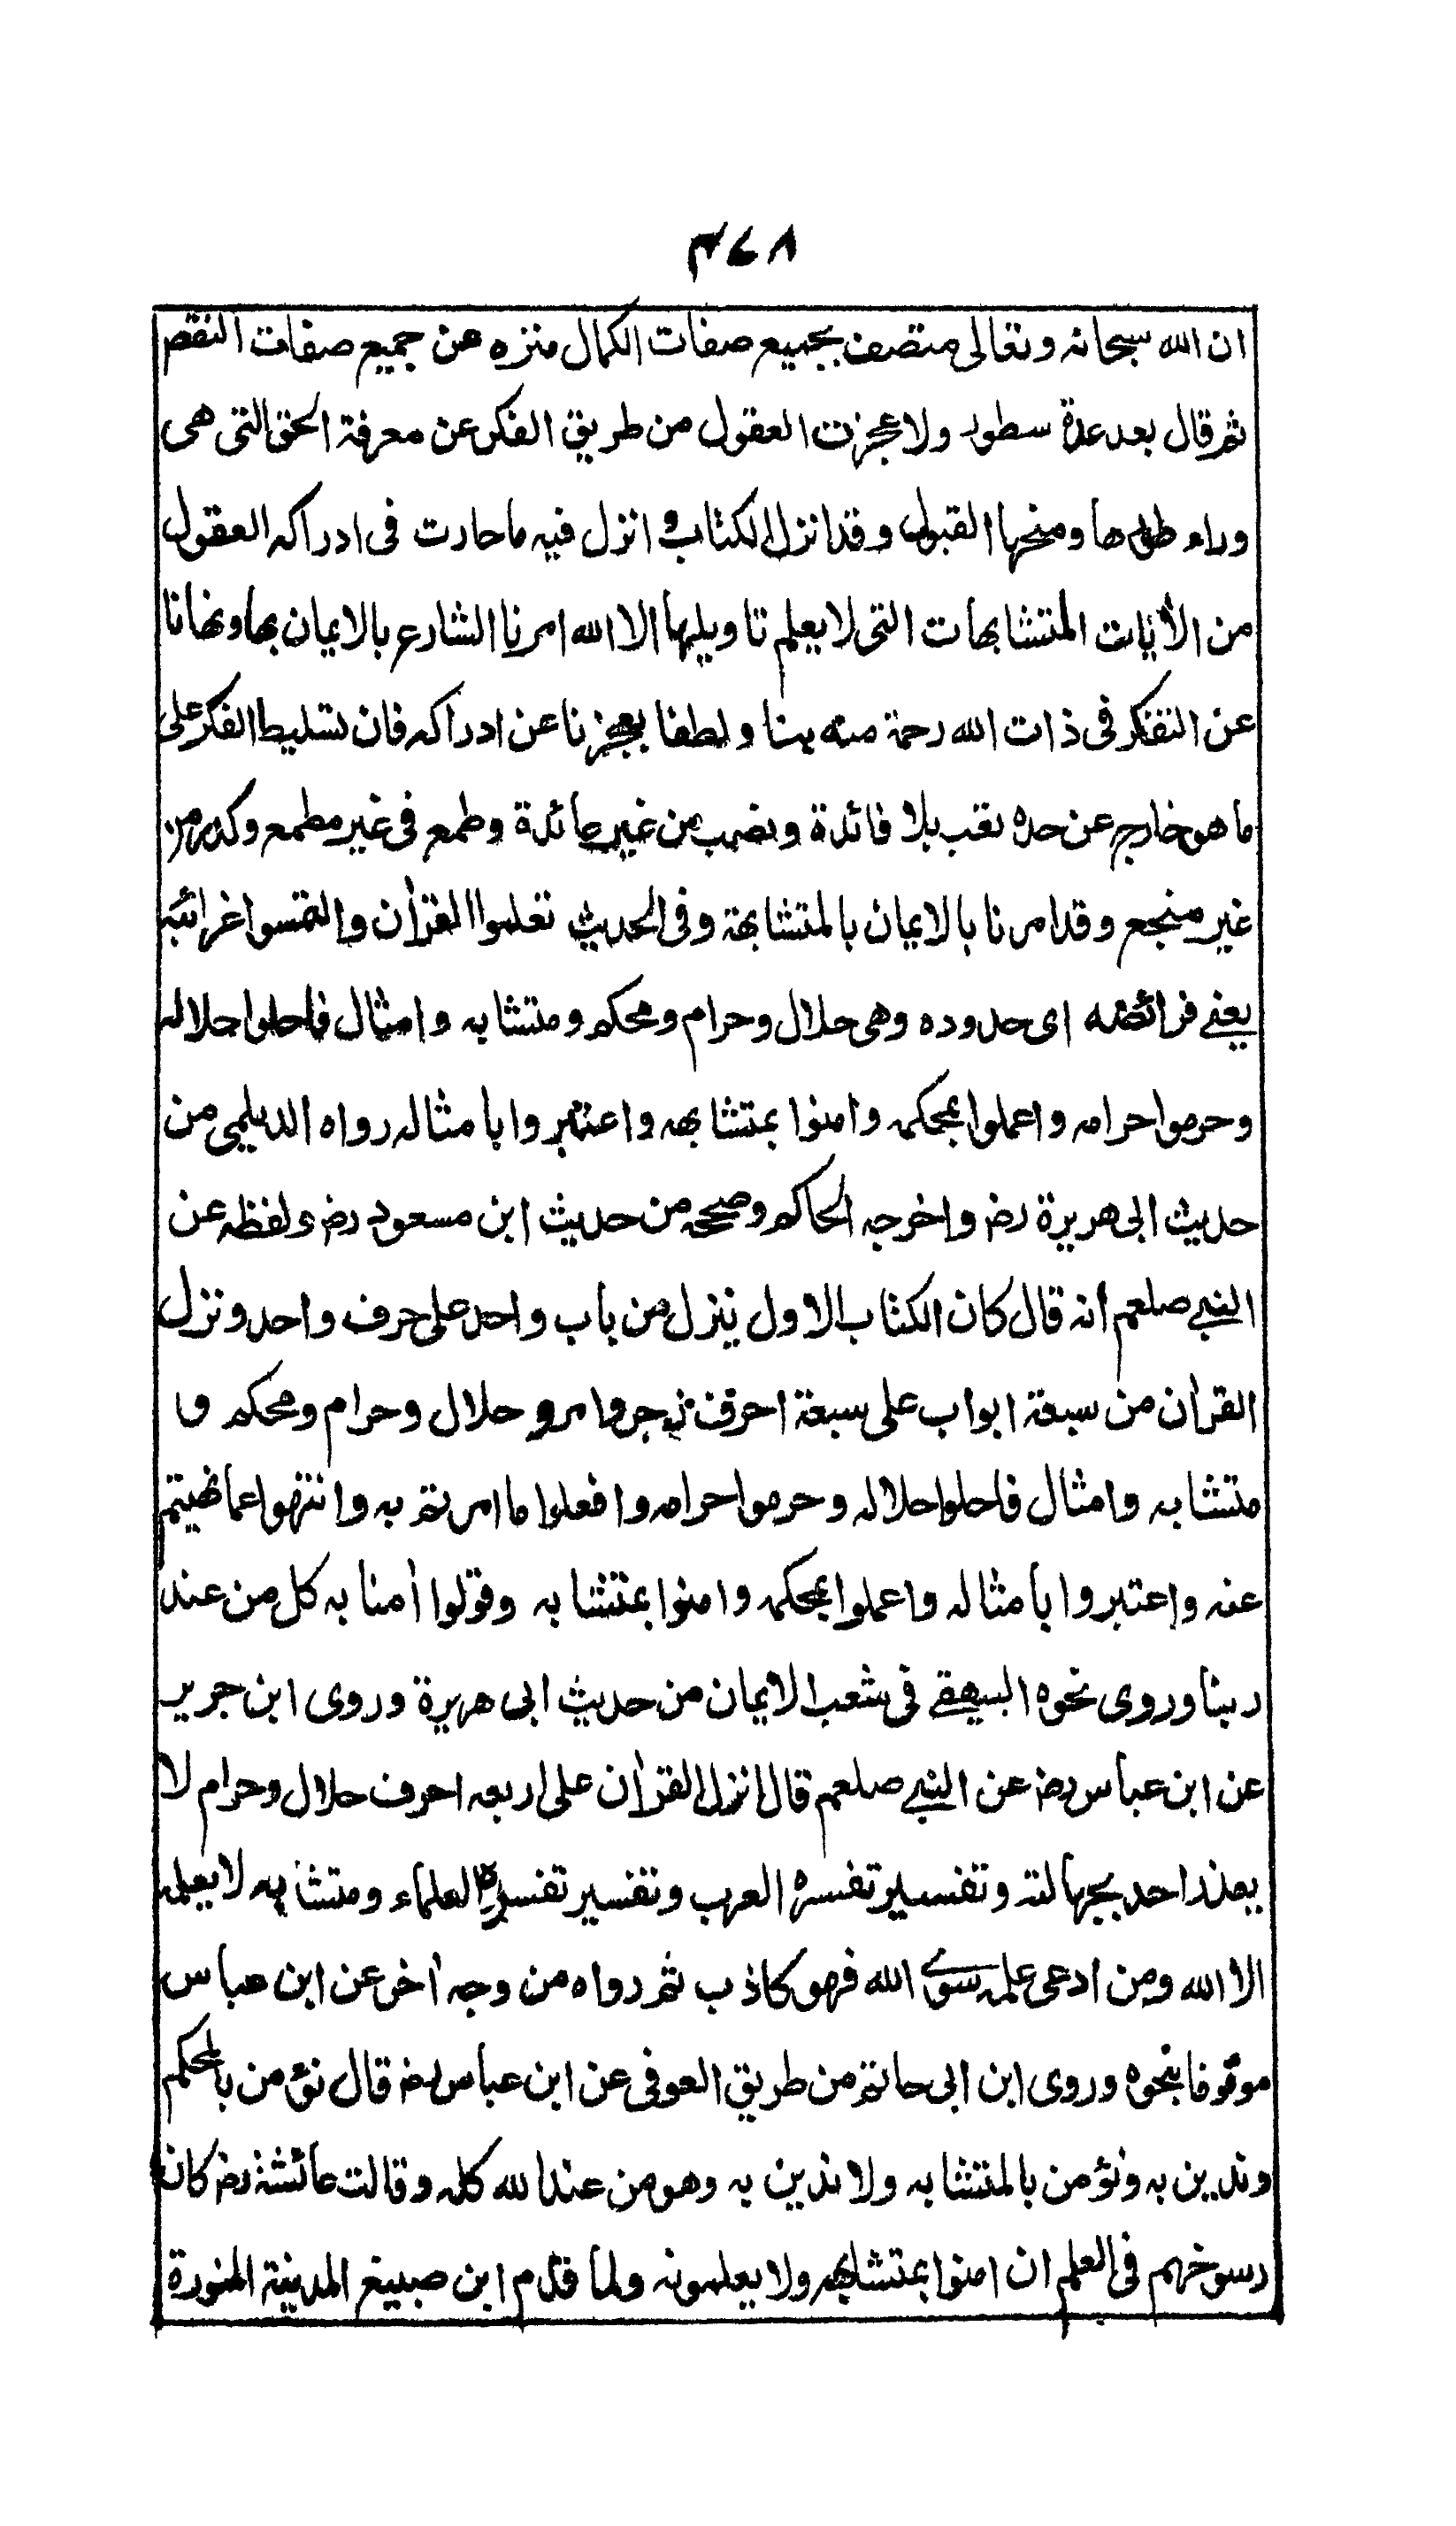 ٣٧٨
ان الله سبحانه وتعالى متصف بجميع صفات الكمال منزه عن جميع صفات النقص
ثم قال بعد عدة سطور ولا عجزت العقول من طريق الفكر عن معرفة الحق التي هي
وراء طورها ومنحها القبول وقد انزل الكتاب وانزل فيه ما حارت في ادراكه العقول
من الأيات المتشابهات التى لا يعلم تاويلها الا الله امرنا الشارع بالايمان بها ونهانا
عن التفكر في ذات الله رحمة منه بنا ولطفا بعجزنا عن ادراكه فان تسليط الفكر على
ما هو خارج عن حده تعب بلا فائدة ونصب من غير عائدة وطمع في غير مطمع وكد من
غير منجع وقد امرنا بالايمان بالمتشابهة وفى الحديث تعلموا القرأن والتمسوا غرائبه
يعنے فرائضه اى حدوده وهى حلال وحرام ومحكم ومتشابه وامثال فاحلوا حلاله
وحرموا حرامه واعملوا بمحكمه وامنوا بمتشابهه واعتبروا بامثاله رواه الديلمى من
حديث ابى هريرة رض واخرجه الحاكم وصححه من حديث ابن مسعود رض ولفظه عن
النبے صلعم أنه قال كان الكتاب الاول ينزل من باب واحد على حرف واحد ونزل
القرأن من سبعة ابواب على سبعة احرف زجر وامر و حلال وحرام ومحكم و
متشابه وامثال فاحلوا حلاله وحرموا حرامه وافعلوا ما امرتم به وانتهوا عما نهيتم
عنه واعتبروا بامثاله واعملوا بمحكمه وامنوا بمتشابه وقولوا أمنا به كل من عند
ربنا وروى نحوه البيهقے فى شعب الايمان من حديث ابى هريرة وروى ابن جرير
عن ابن عباس رض عن النبے صلعم قال انزل القرأن على اربعه احرف حلال وحرام لا
يعذر احد بجهالته وتفسير تفسره العرب وتفسير تفسره العلماء ومتشابه لا يعلمه
الا الله ومن ادعى علمه سوے الله فهو كاذب ثم رواه من وجه أخر عن ابن عباس
موقوفا بنحوه وروى ابن ابى حاتم من طريق العوفى عن ابن عباس رض قال نؤمن بالمحكم
وندين به ونؤمن بالمتشابه ولا ندين به وهو من عند الله كله وقالت عائشة رض كان
رسوخهم فى العلم ان امنوا بمتشابهه ولا يعلمونه ولما قدم ابن صبيغ المدينة المنورة